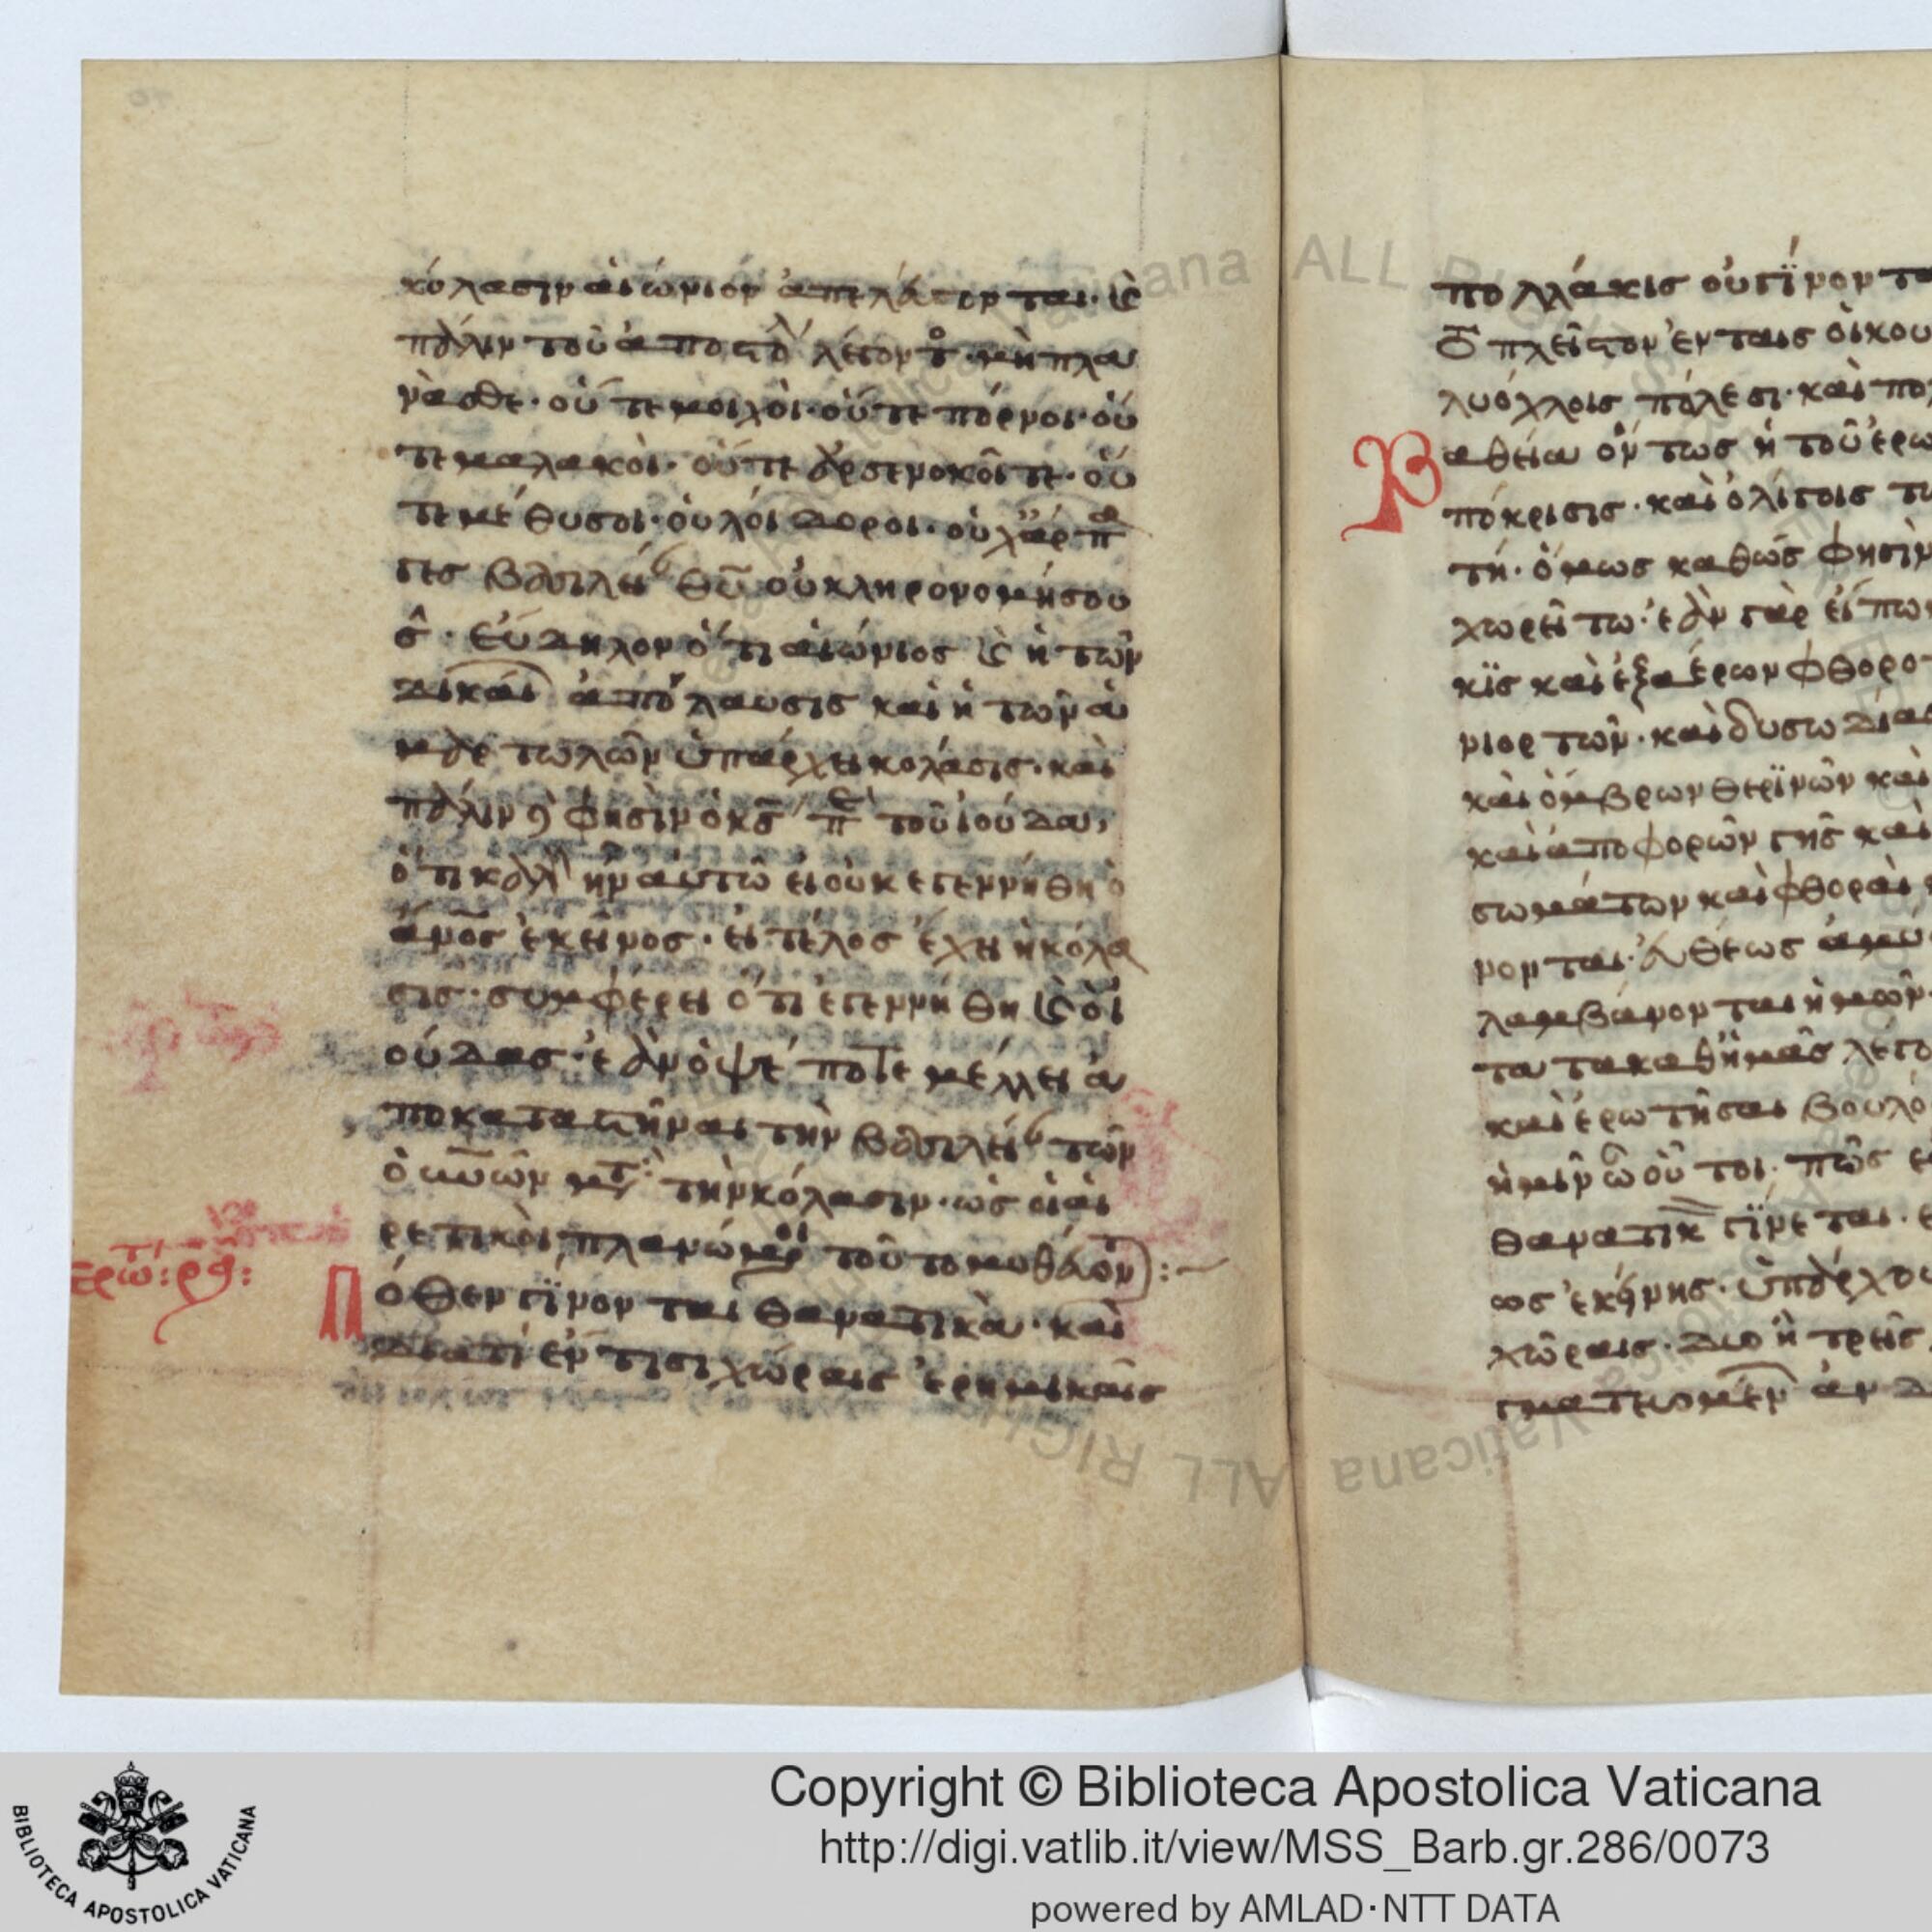 κόλασιν αἰώνιον ἀπελεύσονται· καὶ
πάλιν τοῦ ἀποστόλ λέγοντος· μὴ πλα
νᾶσθε· οὔτε μοιχοὶ· οὔτε πόρνοι· οὔ
τε μαλακοὶ· οὔτε ἀρσενοκοῖτε· οὔ
τε μέθυσοι· οὐ λοίδοροι· οὐχ ἅρπα
γες βασιλεί θῦ οὐ κληρονομήσου
σῖ· εὔδηλον ὅτι αἰώνιος καὶ ἡ τῶν
δικαί ἀπόλαυσις καὶ ἡ τῶν ἁ
μαρτωλῶν ὑπάρχει κόλασις· καὶ
πάλιν φησὶν ὁ κς περὶ τοῦ ἰούδα,
ὅτι καλὸν ἦν αὐτῶ εἰ οὐκ ἐγεννήθη ὁ
ἄνος ἐκεῖνος· εἰ τέλος ἔχει ἡ κόλα
σις· συμφέρει ὅτι ἐγεννήθη καὶ ὁ ἰ
ούδας· ἐὰν ὀψέ ποτε μέλλει ἀ
ποκαταστῆναι τὴν βασιλεί τῶν
οὐνῶν μετὰ τὴν κόλασιν· ὡς οἱ αἱ
ρετικοὶ πλανώμενοι τοῦτο μυθεύον):~
ἐρώ: ρ
Πόθεν γίνονται θανατικὰ· καὶ
διατί ἐν τισι χώραις ἐρημικαῖς
πολλάκις οὐ γίνονται
πλεῖστον ἐν ταις οἰκου
λυόχλοις πόλεσι· καὶ πο
Βαθεῖα ὄντως ἡ τοῦ ἐρω
πόκρισις· καὶ ὀλίγοις
τή· ὅμως καθώς φησὶν
χωρεῖτω· ἐὰν γὰρ εἴπω
κις καὶ ἐξ ἀέρων φθορο
νιος τῶν· καὶ δυσωδία
καὶ ὄμβρων θερινῶν καὶ
καὶ ἀποφορῶν γῆς καὶ
σωμάτων καὶ φθοραὶ
νονται· ἀθέως
λαμβάνονται ἡμῶν·
τα τακαθήμᾶς λέγο
καὶ ἐρωτῆσαι βουλό
ἡμῖν ὦ οὗτοι· πῶς
θανατικ γίνεται·
ως ἐκείνης· ὑπάρχου
χώραις· διο ἢ τρεῖς
Copyright © Biblioteca Apostolica Vaticana
http://digi.vatlib.it/view/MSS_Barb.gr.286/0073
powered by AMLAD·NTT DATA
BIBLIOTECA APOSTOLICA VATICANA